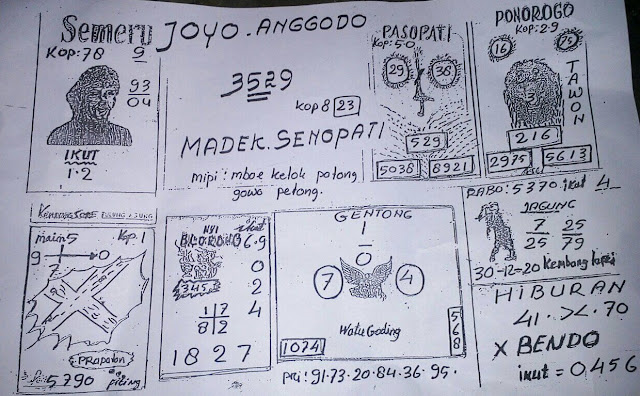 Semeru
Kop: 78 9
93
04
IKUT
1.2
JOYO. ANGGODO
3529
Kop 8 23
MADEK. SENOPATI
mipi: mboe kelok potong
gowo petong.
PASOPATI
Kop: 5.0
29 38
529
5038 8921
PONOROGO
Kop: 2.9
16
TAWON
216
2975 5613
main 5 Kp. 1
9 0
7
PRAPATAN
5790 piting
NYI
BLORONG
ikut
6.9
0
2
345
4
1 7
8 2
1827
GENTONG
1
0
7 4
Watu Goding
1074
568
pri: 91.73.20.84.36.95.
RABO: 5370 ikut 4
JAGUNG
7 25
25 79
30-12-20 Kembang
HIBURAN
41. >< .70
X BENDO
ikut = 0.456